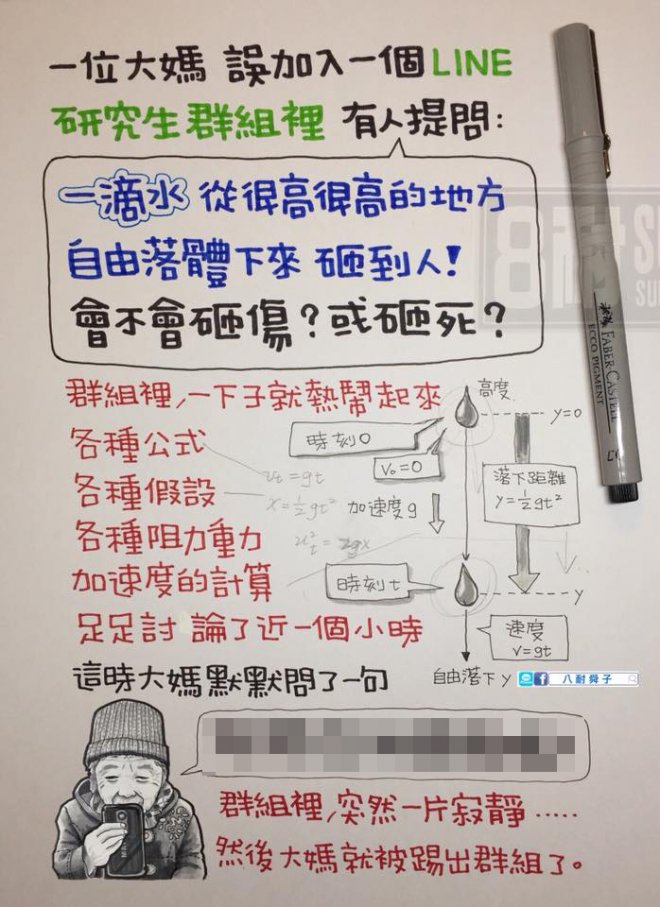 一位大媽 誤加入一個LINE
研究生群組裡 有人提問:
一滴水 從很高很高的地方
自由落體下來 砸到人!
會不會砸傷?或砸死?
群組裡,一下子就熱鬧起來
各種公式
各種假設
各種阻力重力
加速度的計算
足足討論了近一個小時
高度
y=0
時刻0
V₀=0
vt=gt
x=½gt²
加速度g
落下距離
y=½gt²
時刻t
y
速度
v=gt
自由落下 y
八耐舜子
FABER-CASTELL
ECCO PIGMENT
這時大媽默默問了一句
群組裡,突然一片寂靜.....
然後大媽就被踢出群組了。